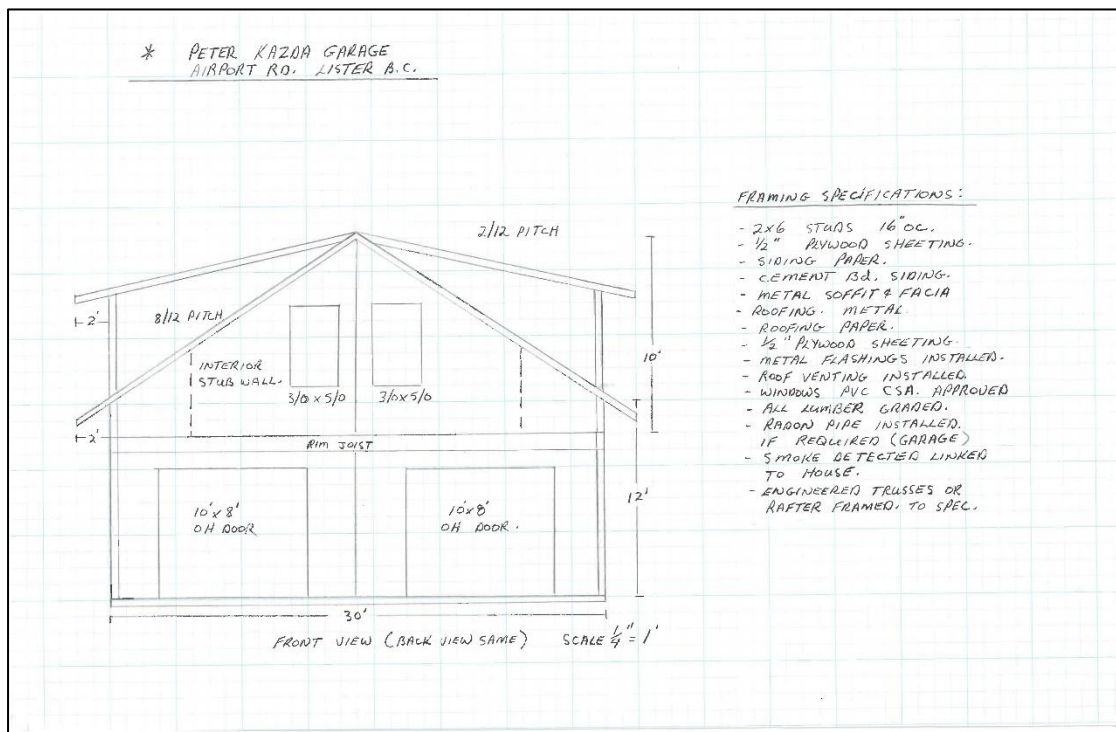 * PETER KAZDA GARAGE
AIRPORT RD. LISTER B.C.
2/12 PITCH
2'
8/12 PITCH
INTERIOR
STUB WALL.
3/0 x 5/0
3/0 x 5/0
10'
2'
RIM JOIST
12'
10' x 8'
OH DOOR
10' x 8'
OH DOOR.
30'
FRONT VIEW (BACK VIEW SAME) SCALE 1/4" = 1'
FRAMING SPECIFICATIONS:
- 2x6 STUDS 16" OC.
- 1/2" PLYWOOD SHEETING.
- SIDING PAPER.
- CEMENT Bd. SIDING.
- METAL SOFFIT & FACIA
- ROOFING. METAL
- ROOFING PAPER.
- 1/2" PLYWOOD SHEETING.
- METAL FLASHINGS INSTALLED.
- ROOF VENTING INSTALLED.
- WINDOWS PVC CSA. APPROVED
- ALL LUMBER GRADED.
- RADON PIPE INSTALLED.
IF REQUIRED (GARAGE)
- SMOKE DETECTED LINKED
TO HOUSE.
- ENGINEERED TRUSSES OR
RAFTER FRAMED. TO SPEC.